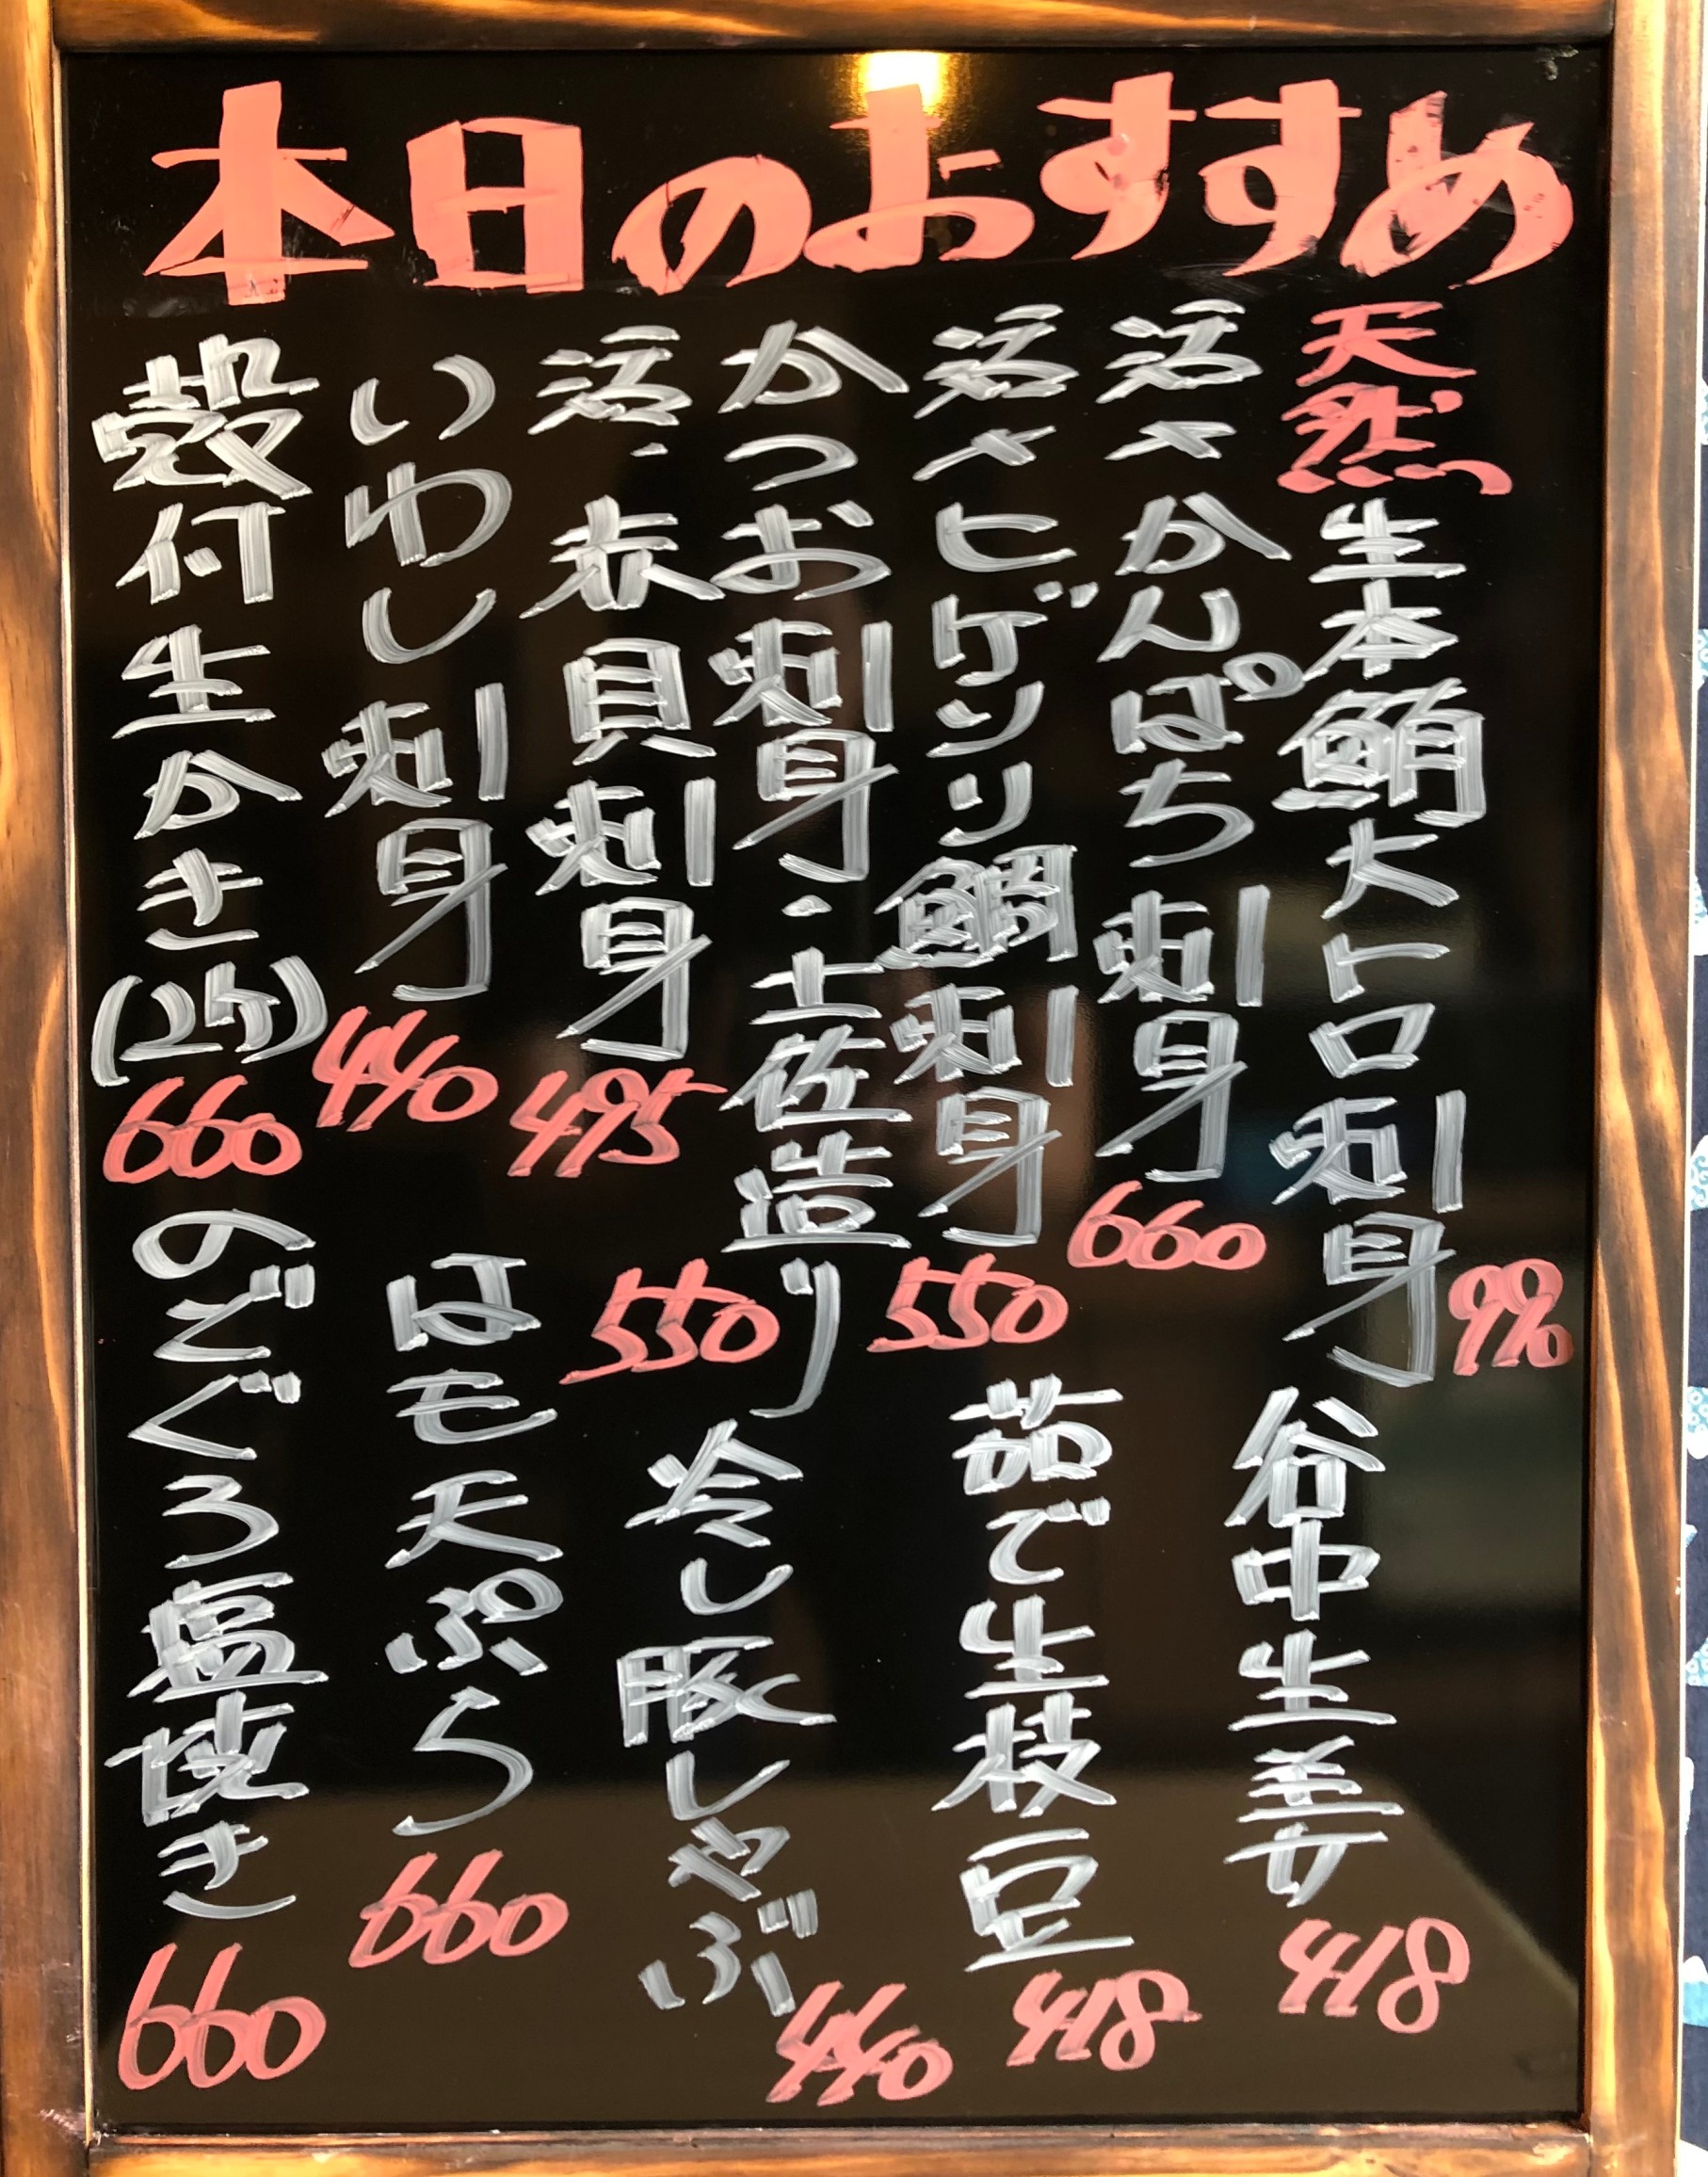 本日のおすすめ
天然生本鮪大トロ刺身 990
活〆かんぱち刺身 660
活〆ヒゲソリ鯛刺身 550
かつお刺身・土佐造り 550
活・赤貝刺身 495
いわし刺身 440
殻付生かき(2ケ) 660
谷中生姜 418
茹で生枝豆 418
冷し豚しゃぶ 440
はモ天ぷら 660
のどぐろ塩焼き 660